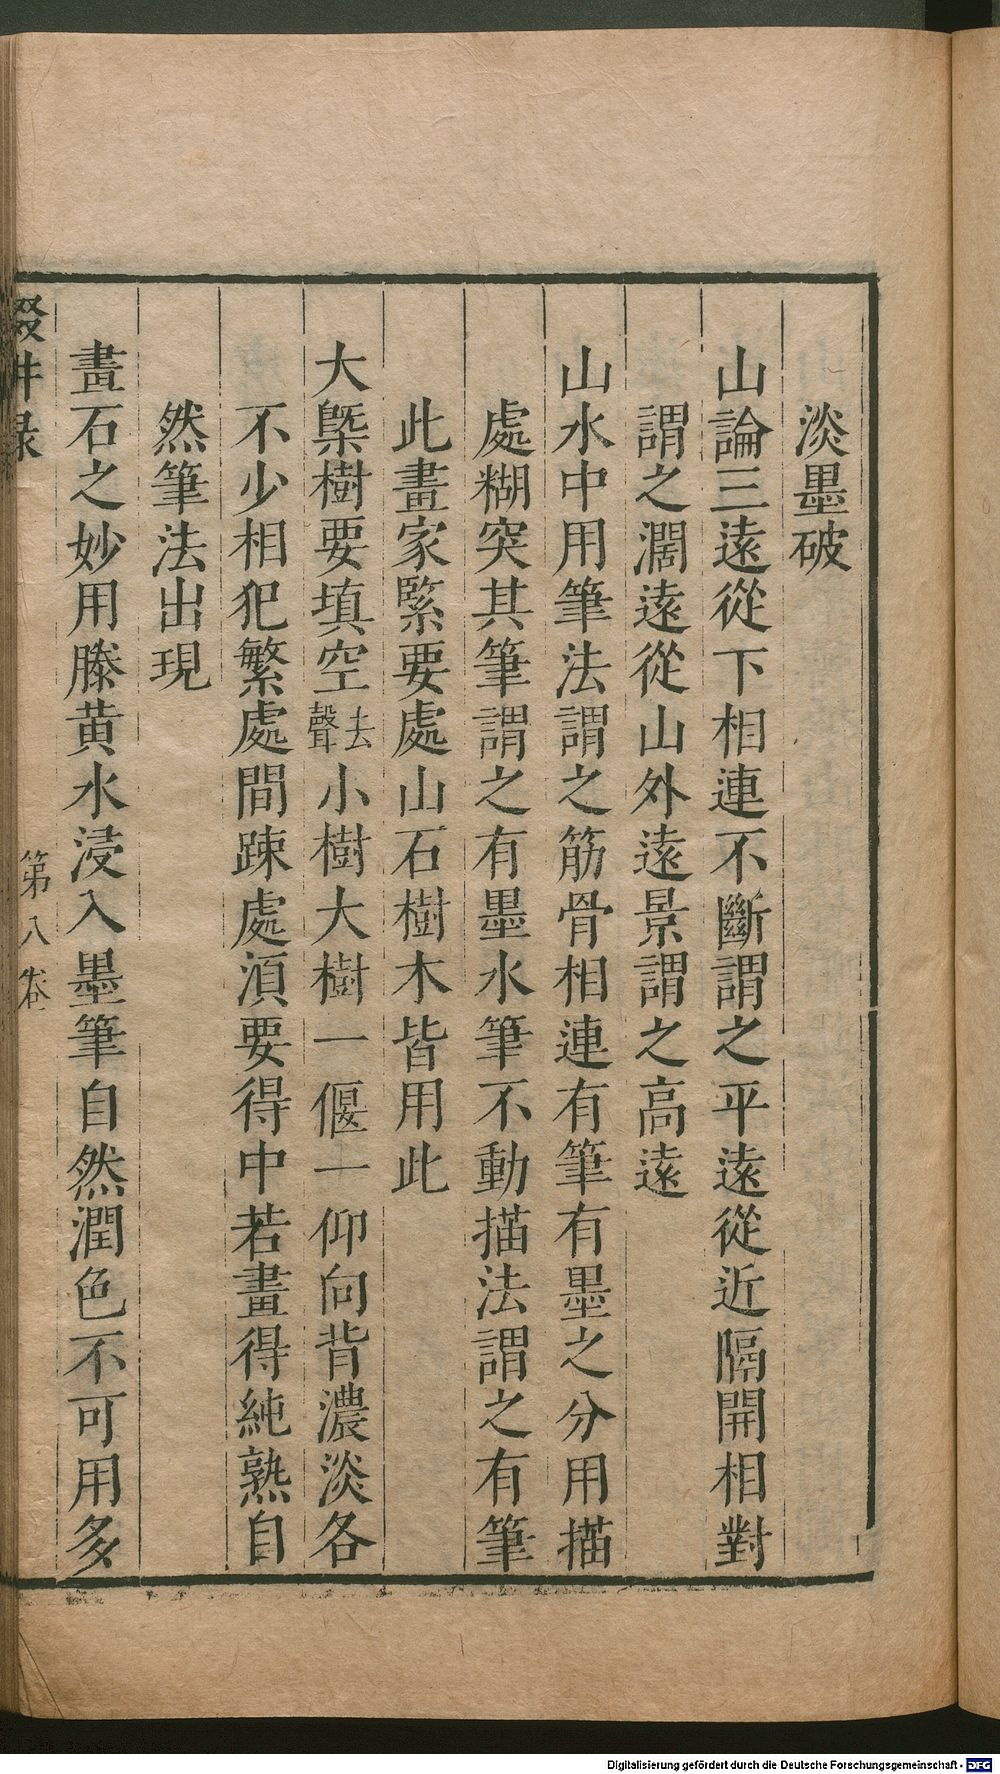 淡墨破
山論三遠從下相連不斷謂之平遠從近隔開相對
謂之濶遠從山外遠景謂之高遠
山水中用筆法謂之筋骨相連有筆有墨之分用描
處糊突其筆謂之有墨水筆不動描法謂之有筆
此畫家緊要處山石樹木皆用此
大槩樹要填空去聲小樹大樹一偃一仰向背濃淡各
不少相犯繁處間踈處湏要得中若畫得純熟自
然筆法出現
畫石之妙用滕黄水浸入墨筆自然潤色不可用多
輟畊录
第八卷
Digitalisierung gefördert durch die Deutsche Forschungsgemeinschaft - DFG